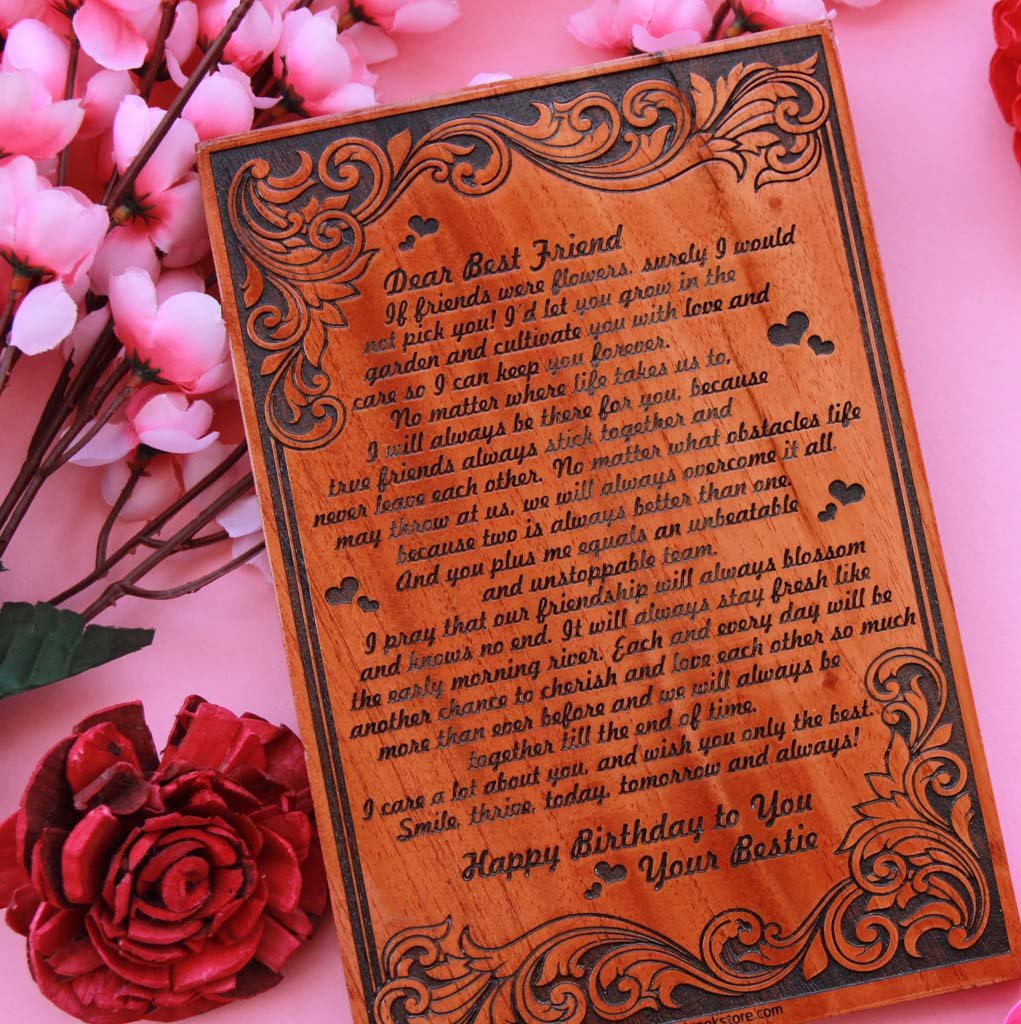 Dear Best Friend
If friends were flowers, surely I would
not pick you! I'd let you grow in the
garden and cultivate you with love and
care so I can keep you forever.
No matter where life takes us to,
I will always be there for you, because
true friends always stick together and
never leave each other. No matter what obstacles life
may throw at us, we will always overcome it all
because two is always better than one.
And you plus me equals an unbeatable
and unstoppable team.
I pray that our friendship will always blossom
and knows no end. It will always stay fresh like
the early morning river. Each and every day will be
another chance to cherish and love each other so much
more than ever before and we will always be
together till the end of time.
I care a lot about you, and wish you only the best.
Smile, thrive, today, tomorrow and always!
Happy Birthday to You
Your Bestie